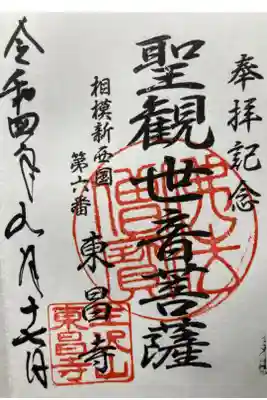 奉拝記念
聖観世音菩薩
相模新西国
第六番
東昌寺
令和四年九月十七日
佛法僧寶
東昌寺